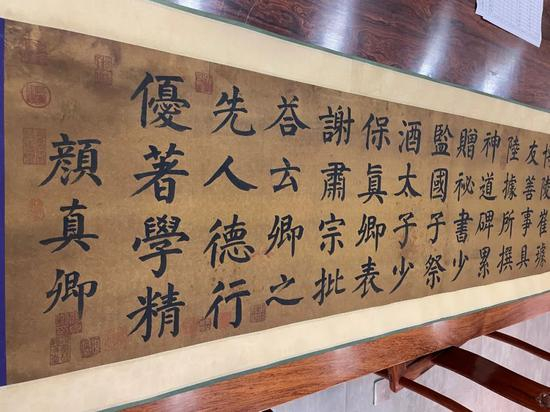 博陵崔璩
友善事具
陸據所撰
神道碑累
贈祕書少
監國子祭
酒太子少
保真卿表
謝肅宗批
荅云卿之
先人德行
優著學精
顔真卿